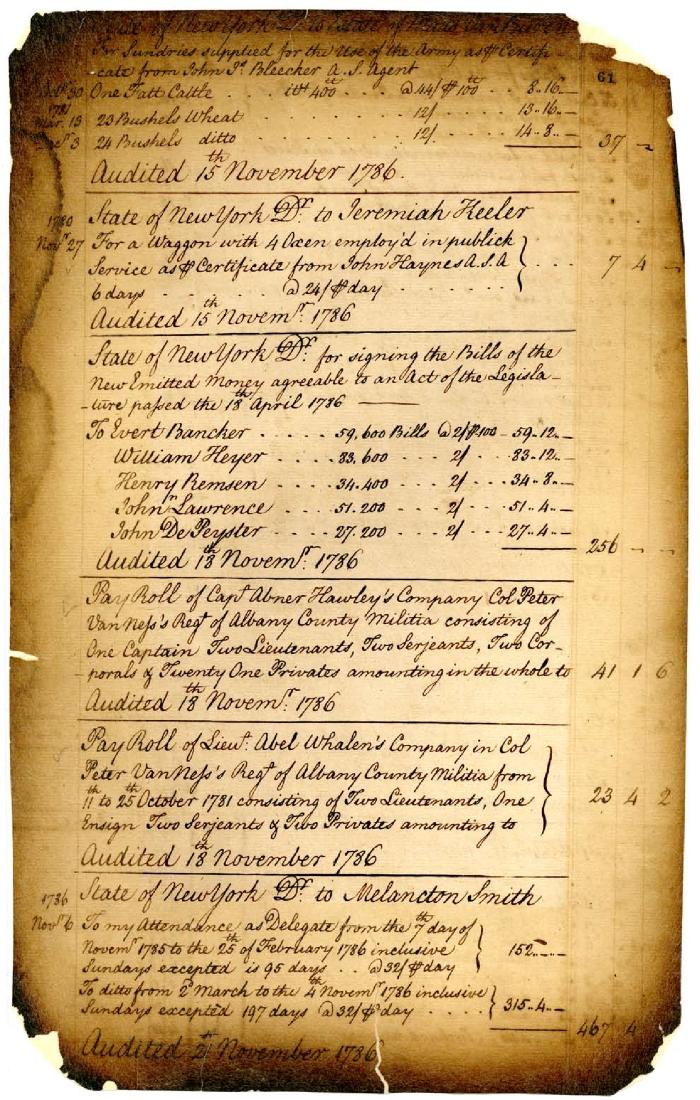 State of New York Dr. to Estate of
For Sundries supplied for the Use of the Army as ⅌ Certifi-
cate from John Js. Bleecker A. S. Agent
61
30 One Fatt Cattle . . . itwt 400 . . @ 44/ ⅌ 100th . . . 8..16..—
1781
Mar. 13 23 Bushels Wheat . . . . . 12/ . . . . 13..16..—
3 24 Bushels ditto . . . . . 12/ . . . . 14..8..— 37 —
Audited 15th November 1786.
State of New York Dr. to Jeremiah Keeler
1780
Novr 27 For a Waggon with 4 Oxen employ'd in publick
Service as ⅌ Certificate from John Haynes A. S. A . . . 7 4 —
6 days . . . . . @ 24/ ⅌ day . . . . .
Audited 15th Novemr. 1786
State of New York Dr. for signing the Bills of the
New Emitted Money agreeable to an Act of the Legisla-
-ture passed the 18th April 1786 ——
To Evert Bancker . . . . 59,600 Bills @ 2/ ⅌ 100 — 59..12..—
William Heyer . . . . 83,600 . . 2/ . . . 83..12..—
Henry Remsen . . . . 34.400 . . 2/ . . . 34..8..—
John Lawrence . . . . 51.200 . . 2/ . . . 51..4..—
John De Peyster . . . . 27.200 . . 2/ . . . 27..4..—
256 — —
Audited 18th Novemr. 1786
Pay Roll of Capt Abner Hawley's Company Col Peter
Van Ness's Regt of Albany County Militia consisting of
One Captain Two Lieutenants, Two Serjeants, Two Cor-
-porals & Twenty One Privates amounting in the whole to 41 1 6
Audited 18th Novemr. 1786
Pay Roll of Lieut. Abel Whalen's Company in Col
Peter Van Ness's Regt of Albany County Militia from
11th to 25th October 1781 consisting of Two Lieutenants, One 23 4 2
Ensign Two Serjeants & Two Privates amounting to
Audited 18th November 1786
State of New York Dr. to Melancton Smith
1786
Novr 6 To my Attendance as Delegate from the 7th day of
Novemr 1785 to the 25th of February 1786 inclusive 152..—..—
Sundays excepted is 95 days . . @ 32/ ⅌ day
To ditto from 2d March to the 4th Novemr 1786 inclusive
Sundays excepted 197 days @ 32/ ⅌ day . . . . 315..4..—
467 4
Audited 21st November 1786